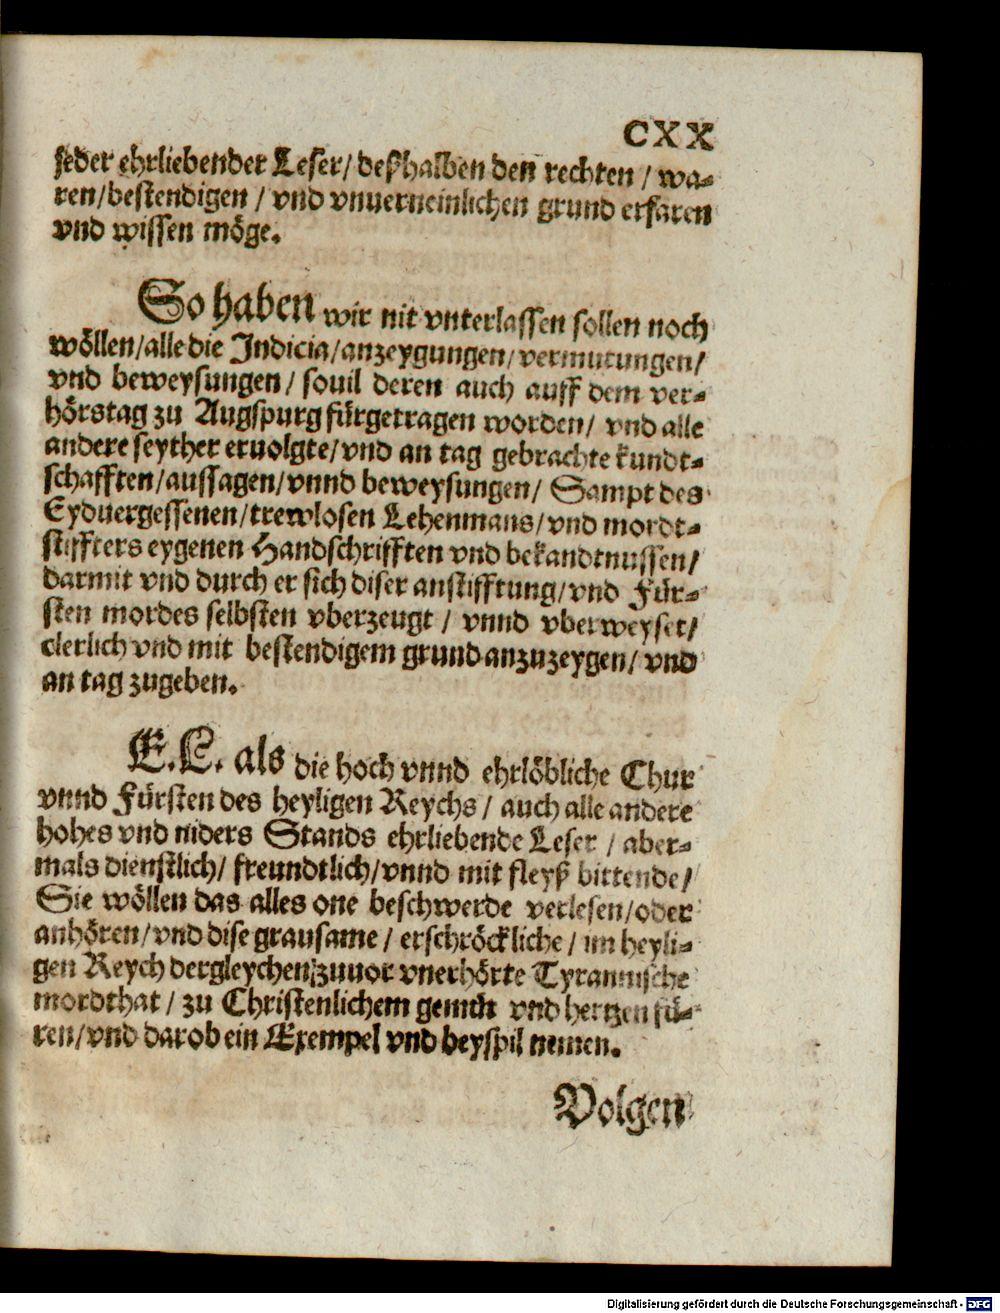 CXX
jeder ehrliebender Leser / deßhalben den rechten / wa-
ren / bestendigen / vnd vnuerneinlichen grund erfaren
vnd wissen möge.
So haben wir nit vnterlassen sollen noch
wöllen / alle die Indicia / anzeygungen / vermutungen /
vnd beweysungen / souil deren auch auff dem ver-
hörstag zu Augspurg fürgetragen worden / vnd alle
andere seyther eruolgte / vnd an tag gebrachte kundt-
schafften / aussagen / vnnd beweysungen / Sampt des
Eyduergessenen / trewlosen Lehenmans / vnd mordt-
stiffters eygenen Handschrifften vnd bekandtnussen /
darmit vnd durch er sich diser anstifftung / vnd Für-
sten mordes selbsten vberzeugt / vnnd vberweyset /
clerlich vnd mit bestendigem grund anzuzeygen / vnd
an tag zugeben.
E. L. als die hoch vnnd ehrlöbliche Chur
vnnd Fürsten des heyligen Reychs / auch alle andere
hohes vnd niders Stands ehrliebende Leser / aber-
mals dienstlich / freundtlich / vnnd mit fleyß bittende /
Sie wöllen das alles one beschwerde verlesen / oder
anhören / vnd dise grausame / erschröckliche / im heyli-
gen Reych dergleychen zuuor vnerhörte Tyrannische
mordthat / zu Christenlichem gemüt vnd hertzen fü-
ren / vnd darob ein Exempel vnd beyspil nemen.
Volgen
Digitalisierung gefördert durch die Deutsche Forschungsgemeinschaft - DFG